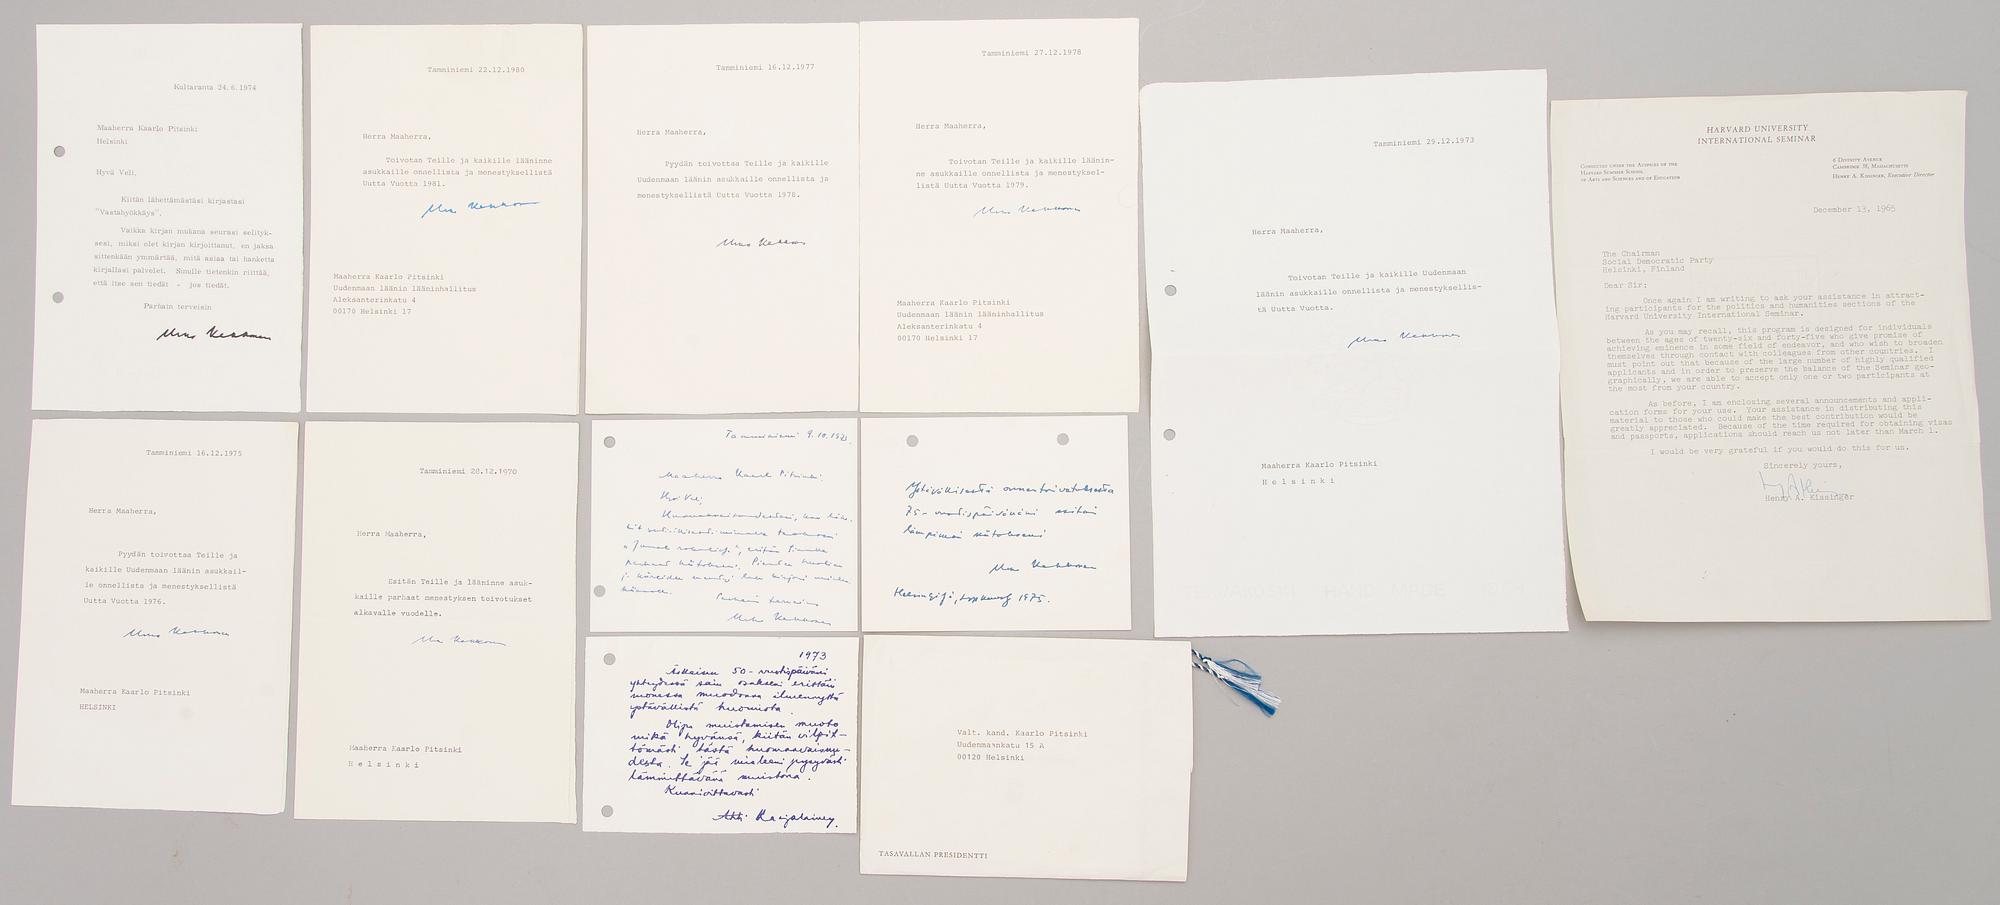 Kultaranta 24.6.1974
Maaherra Kaarlo Pitsinki
Helsinki
Hyvä Veli,
Kiitän lähettämästäsi kirjastasi
"Vastahyökkäys".
Vaikka kirjan mukana seurasi selityk-
sesi, miksi olet kirjan kirjoittanut, en jaksa
sittenkään ymmärtää, mitä asiaa tai hanketta
kirjallasi palvelet. Sinulle tietenkin riittää,
että itse sen tiedät - jos tiedät.
Parhain terveisin
Urho Kekkonen
Tamminiemi 22.12.1980
Herra Maaherra,
Toivotan Teille ja kaikille lääninne
asukkaille onnellista ja menestyksellistä
Uutta Vuotta 1981.
Urho Kekkonen
Maaherra Kaarlo Pitsinki
Uudenmaan läänin lääninhallitus
Aleksanterinkatu 4
00170 Helsinki 17
Tamminiemi 16.12.1977
Herra Maaherra,
Pyydän toivottaa Teille ja kaikille
Uudenmaan läänin asukkaille onnellista ja
menestyksellistä Uutta Vuotta 1978.
Urho Kekkonen
Tamminiemi 27.12.1978
Herra Maaherra,
Toivotan Teille ja kaikille läänin-
ne asukkaille onnellista ja menestyksel-
listä Uutta Vuotta 1979.
Urho Kekkonen
Maaherra Kaarlo Pitsinki
Uudenmaan läänin lääninhallitus
Aleksanterinkatu 4
00170 Helsinki 17
Tamminiemi 29.12.1973
Herra Maaherra,
Toivotan Teille ja kaikille Uudenmaan
läänin asukkaille onnellista ja menestyksellis-
tä Uutta Vuotta.
Urho Kekkonen
Maaherra Kaarlo Pitsinki
Helsinki
HAND MADE
HARVARD UNIVERSITY
INTERNATIONAL SEMINAR
CONDUCTED UNDER THE AUSPICES OF THE
HARVARD SUMMER SCHOOL
OF ARTS AND SCIENCES AND OF EDUCATION
6 DIVINITY AVENUE
CAMBRIDGE 38, MASSACHUSETTS
HENRY A. KISSINGER, Executive Director
December 13, 1965
The Chairman
Social Democratic Party
Helsinki, Finland
Dear Sir:
Once again I am writing to ask your assistance in attract-
ing participants for the politics and humanities sections of the
Harvard University International Seminar.
As you may recall, this program is designed for individuals
between the ages of twenty-six and forty-five who give promise of
achieving eminence in some field of endeavor, and who wish to broaden
themselves through contact with colleagues from other countries. I
must point out that because of the large number of highly qualified
applicants and in order to preserve the balance of the Seminar geo-
graphically, we are able to accept only one or two participants at
the most from your country.
As before, I am enclosing several announcements and appli-
cation forms for your use. Your assistance in distributing this
material to those who could make the best contribution would be
greatly appreciated. Because of the time required for obtaining visas
and passports, applications should reach us not later than March 1.
I would be very grateful if you would do this for us.
Sincerely yours,
Henry A. Kissinger
Tamminiemi 16.12.1975
Herra Maaherra,
Pyydän toivottaa Teille ja
kaikille Uudenmaan läänin asukkail-
le onnellista ja menestyksellistä
Uutta Vuotta 1976.
Urho Kekkonen
Maaherra Kaarlo Pitsinki
HELSINKI
Tamminiemi 28.12.1970
Herra Maaherra,
Esitän Teille ja lääninne asuk-
kaille parhaat menestyksen toivotukset
alkavalle vuodelle.
Urho Kekkonen
Maaherra Kaarlo Pitsinki
Helsinki
Tamminiemi 9.10.
Maaherra Kaarlo Pitsinki
Hyvä Veli,
parhaat kiitokseni.
Parhain terveisin
Urho Kekkonen
Ystävällisestä onnentoivotuksesta
75-vuotispäivänäni esitän
lämpimän kiitokseni
Urho Kekkonen
Helsingissä, syyskuussa 1975.
1973
Äskeisen 50-vuotispäiväni
yhteydessä sain osakseni erittäin
monessa muodossa ilmennyttä
ystävällistä huomiota.
Olipa muistamisen muoto
mikä hyvänsä, kiitän vilpit-
tömästi tästä huomaavaisuu-
desta. Se jää mieleeni pysyvästi
lämmittävänä muistona.
Kunnioittavasti
Ahti Karjalainen.
Valt. kand. Kaarlo Pitsinki
Uudenmaankatu 15 A
00120 Helsinki
TASAVALLAN PRESIDENTTI